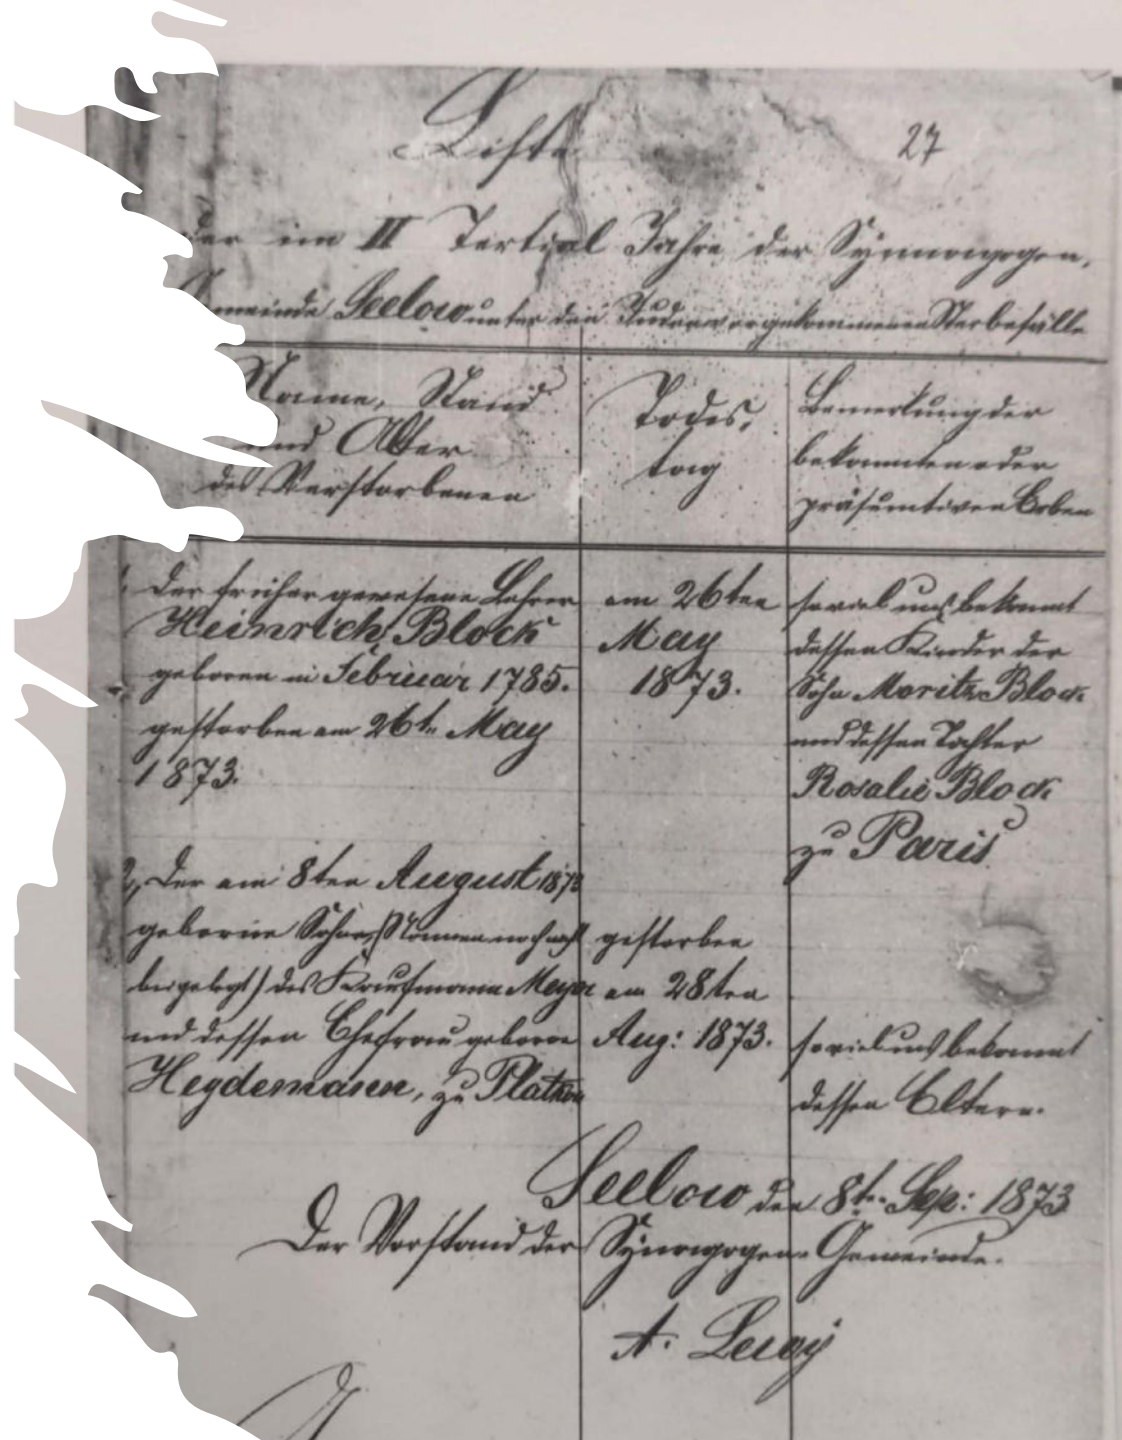 Liste
27
der im II Tertial Jahre der Synnagogen,
Gemeinde Seelow unter den Juden vorgekommenen Sterbefälle
Name, Stand
und Alter
des Verstorbenen
Todes,
tag
Bemerkung der
bekannten oder
präsumtiven Erben
1, Der früher gewesene Lehrer
Heinrich Block
geboren in Februar 1785.
gestorben am 26te May
1873.
am 26ten
May
1873.
soviel uns bekannt
dessen Kinder der
Sohn Moritz Block
und dessen Tochter
Rosalie Block
zu Paris
2, Der am 8ten August 1873
geborne Sohn, (Namen noch nicht
beigelegt) des Kaufmann Meyer
und dessen Ehefrau geborne
Heydemann, zu Platkow
gestorben
am 28ten
Aug: 1873.
soviel uns bekannt
dessen Eltern.
Seelow den 8t. Sep: 1873
Der Vorstand der Synagogen-Gemeinde.
A. Levy